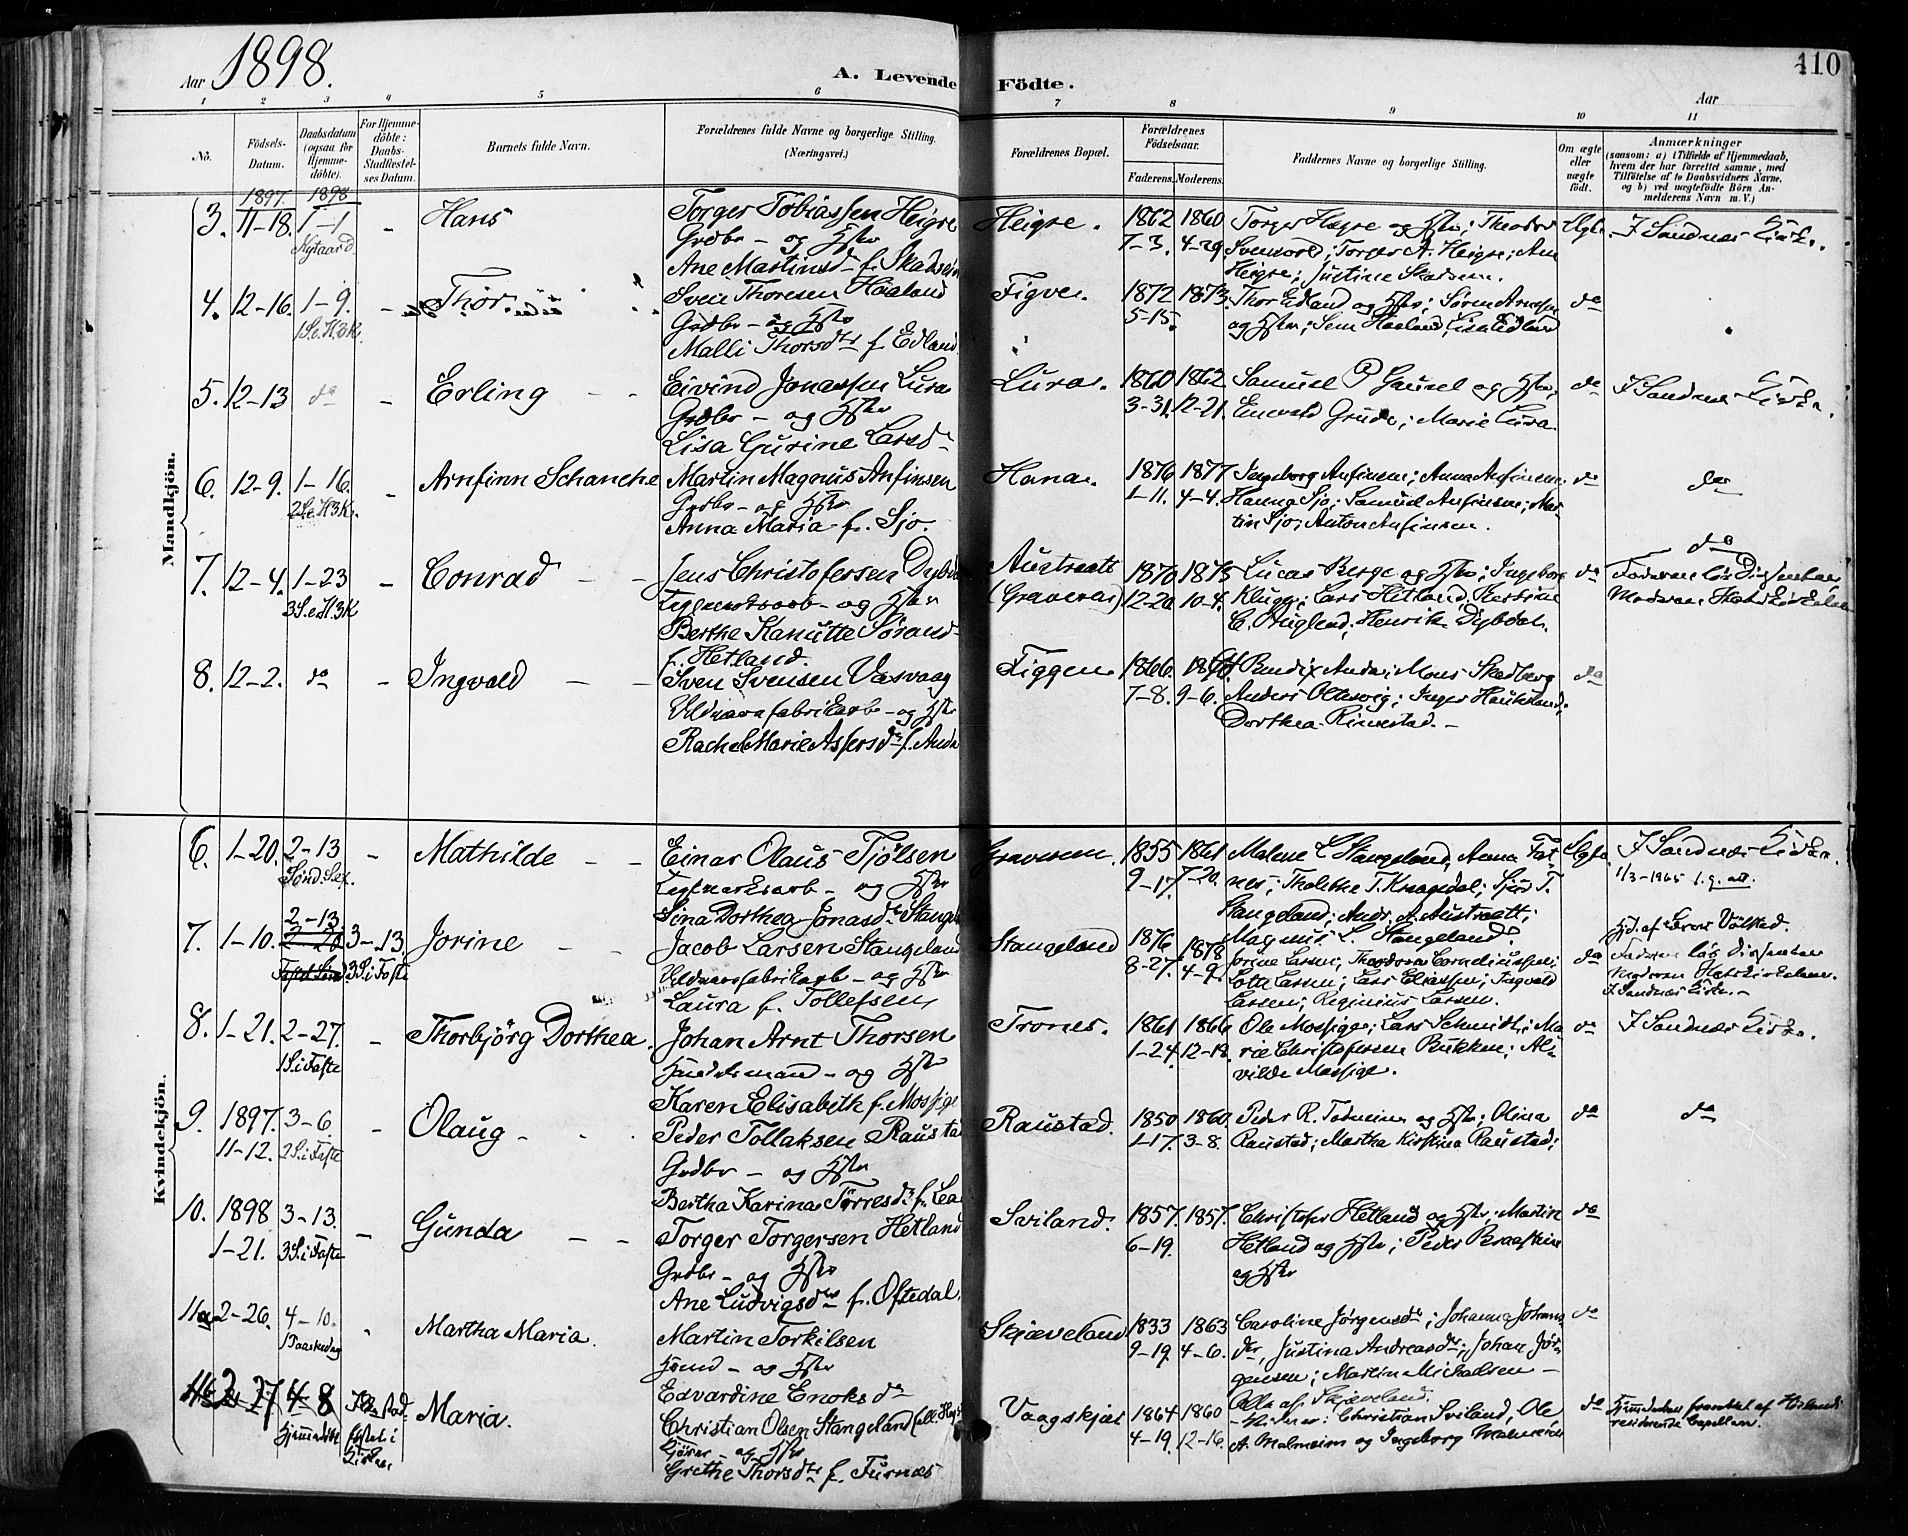 Aar 1898.
A. Levende Födte.
110
Aar
1 2 3 4 5 6 7 8 9 10 11
No.
Födsels-Datum.
Daabsdatum (ogsaa for Hjemme-döbte).
For Hjemme-döbte: Daabs-Stadfæstel-ses Datum.
Barnets fulde Navn.
Forældrenes fulde Navne og borgerlige Stilling. (Næringsvei.)
Forældrenes Bopæl.
Forældrenes Födselsaar.
Faderens. Moderens.
Faddernes Navne og borgerlige Stilling.
Om ægte eller uægte födt.
Anmærkninger
(saasom: a) i Tilfælde af Hjemmedaab, hvem der har forrettet samme, med Tilföielse af to Daabsvidners Navne. og b) ved uægtefödte Börn An-melderens Navn m. V.)
Mandkjön.
1897. 1898
3. 11-18. 1-1 Nytaarsd. - Hans
Torger Tobiassen Heigre
Grdbr - og Hstr
Ane Martinsdr f. Skadsem
Heigre. 1862 7-3. 1860 4-29
Torger Høgre og Hstr; Theodor
Svensvold; Torger A. Heigre; Ane
Heigre; Justine Skadsem.
Ægte. I Sandnes Kirke.
4. 12-16. 1-9. 1 S. e. H3K. - Thor
Sven Thoresen Haaland
Grdbr - og Hstr
Malli Thorsdtr f. Edland.
Figve. 1872 5-15. 1873.
Thor Edland og Hstr; Søren
og Hstr; Sem Haaland, Lisa Edland
do
5. 12-13 do - Erling
Eivind Jonassen Lura
Grdbr - og Hstr
Lisa Gurine Larsdr
Lura. 1860 3-31. 1862 12-21.
Samuel P Gausel og Hstr;
Enevald Grude; Marie Lura.
do I Sandnes Kirke.
6. 12-9. 1-16. 2 S. e. H3K. - Arnfinn Schanche
Martin Magnus Anfinsen
Grdbr - og Hstr
Anna Maria f. Sjo.
Hana. 1876 1-11. 1877 4-4.
Ingeborg Anfinsen; Anna Anfinsen;
Hanna Sjo; Samuel Anfinsen; Mar-
tin Sjo; Anton Anfinsen.
do do
7. 12-4. 1-23 3 S. e. H3K - Conrad
Jens Christofersen Dybdal
Teglverksarb - og Hstr
Berthe Kanutte Sørand-
f. Hetland.
Austraatt (Graveren) 1870 12-20 1873 10-4.
Lucas Berge og Hstr; Ingeborg
Klugg; Lars Hetland;
C. Auglend; Henrik Dybdal.
do do
Faderen løs Dissenter
Moderen Statskirken
8. 12-2. do - Ingvald
Sven Svensen Vasvaag
Uldvarefabrikarb - og Hstr
Rachel Marie Aspersdr f. Anda
Figgen 1866. 7-8. 9-6.
Bendix Anda; Mons Skadberg
Anders Oltesvig; Inger Haukland;
Dorthea Rimestad. -
do
Kvindekjön.
6. 1-20. 2-13 Sönd. Sex. - Mathilde
Einar Olaus Tjölsen
Teglverksarb - og Hstr
Sina Dorthea Jonasdr Stangeland
Graveren. 1855 9-17. 1861 7-20.
Malene L Stangeland, Anna Fat-
nes; Thalethe T. Kragedal; Sjurd T.
Stangeland; Andr. A. Austraatt;
Magnus L. Stangeland.
Ægte I Sandnes Kirke.
1/3-1965 f. g. att.
7. 1-10. 2-13 2-20 Fastel. Sönd 3-13. 3 S. i Faste Jorine
Jacob Larsen Stangeland
Uldvarefabrikarb - og Hstr
Laura f. Tollefsen,
Stangeland 1876 8-27. 1878 4-9.
Jorine Larsen; Theodora Corneliussen;
Lotte Larsen; Lars Eliassen; Ingvald
Larsen; Reginius Larsen.
do
Hjd. af Lærer Völstad.
Faderen løs Dissenter
Moderen Statskirken.
I Sandnes Kirke. -
8. 1-21. 2-27. 1 S. i Faste - Thorbjörg Dorthea.
Johan Arnt Thorsen
Handelsmand - og Hstr
Karen Elisabeth f. Mossige
Trones. 1861 1-24. 1866 12-12.
Ole Mossige; Lars Schmidt; Ma-
rie Christofersen Bukken; Al-
vilde Mossige.
do I Sandnes Kirke.
9. 1897. 11-12. 3-6. 2 S. i Faste - Olaug -
Peder Tollaksen Raustad
Grdbr - og Hstr
Bertha Karina Törresdr f. Lea
Raustad. 1850 1-17. 1860 3-8.
Peder R. Todneim og Hstr; Olina
Raustad; Martha Kirstina Raustad;
do do
10. 1898 1-21. 3-13. 3 S. i Faste - Gunda
Torger Torgersen Hetland
Grdbr - og Hstr
Ane Ludvigsdtr f. Oftedal.
Sviland. 1857. 6-19. 1857.
Christofer Hetland og Hstr. Martin
Hetland og Hstr; Peder Braastein
og Hstr
do
11a 2-26. 4-10. 1 Paaskedag Martha Maria.
Martin Torkilsen
Hmd - og Hstr
Edvardine Enoksdr
Skjæveland 1833 9-19. 1863 4-6.
Caroline Jørgensdr; Johanna Johans-
dr, Justina Andreasdr; Johan Jör-
gensen; Martin Michalsen -
Alle af Skjæveland.
do
11b 2-27 4-8 Hjemmedöbt Maria.
Christian Olsen Stangeland
og Hstr
Grethe Thorsdtr f. Furnæs
Vaagskjær 1864 4-19. 1860 12-16.
Christian Sviland, Ole
A. Malmeim og Ingeborg Malmeim
do Hjemmedaab forrettet af
residerende Capellan.